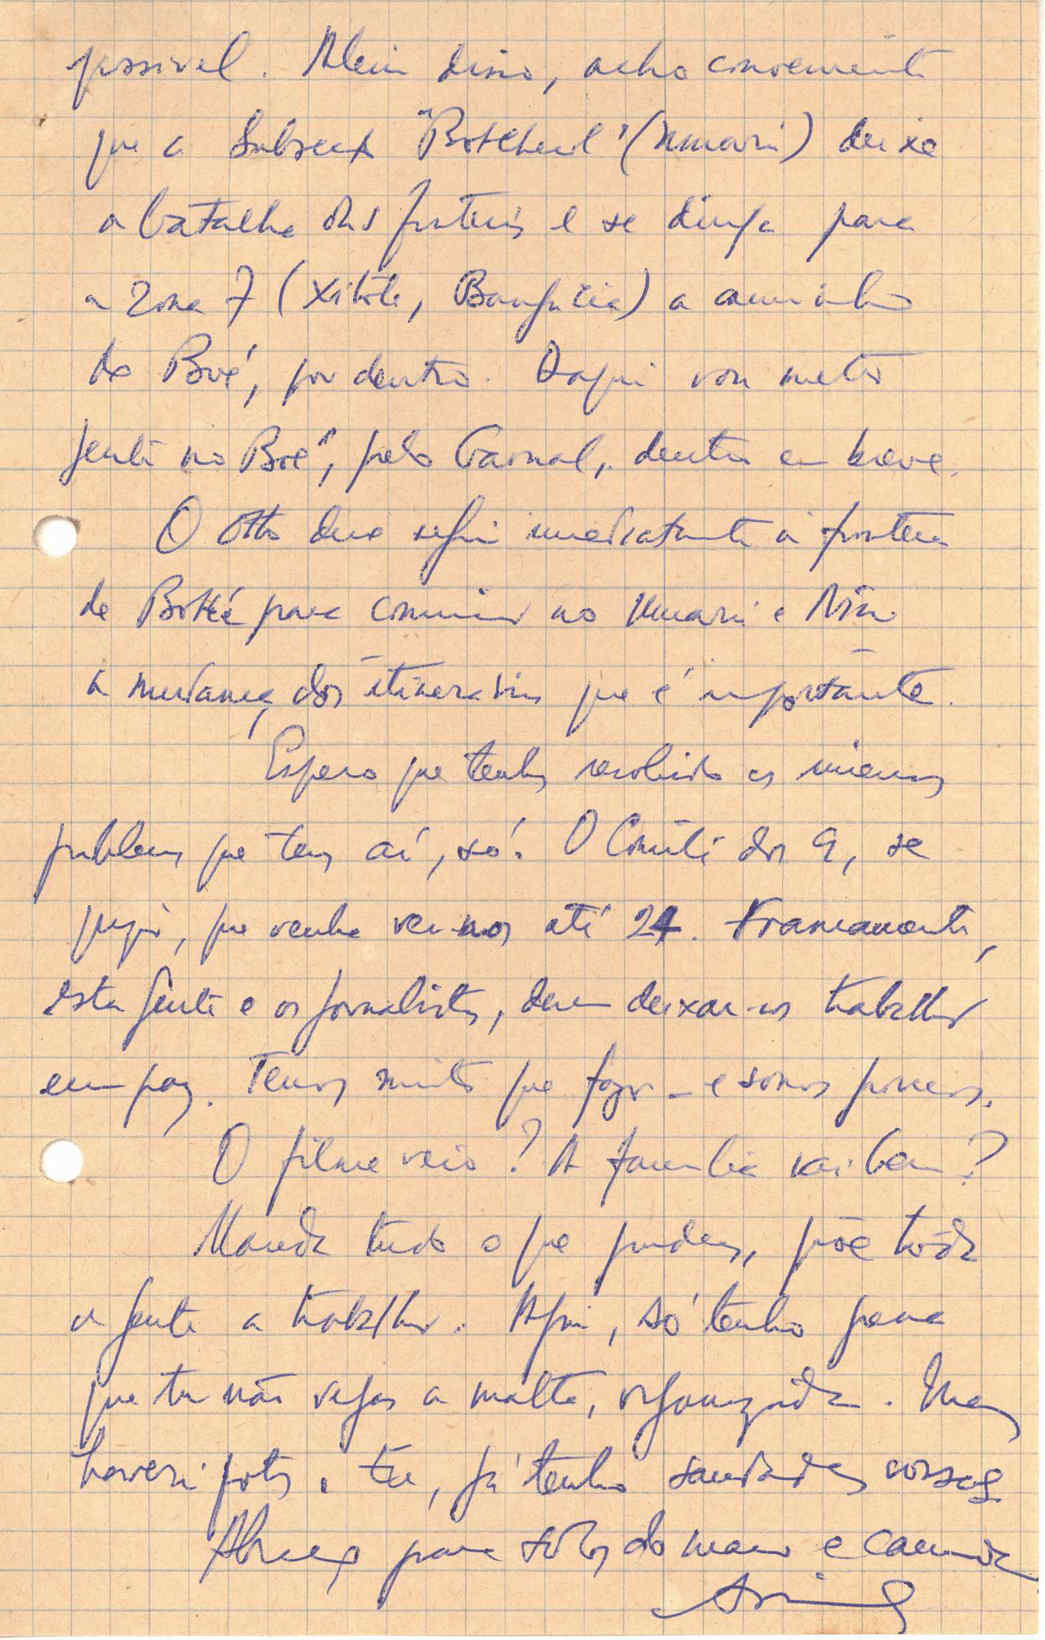 possível. Além disso, acho conveniente
que a Subsect "Botcheul" (Umaru) deixe
a batalha das fronteiras e se dirija para
a Zona 7 (Xitole, Banfácia) a caminho
do Boé, por dentro. Daqui vou meter
gente no Boé, pelo Gaoual, dentro em breve.
O Otto deve seguir imediatamente à fronteira
de Botké para comunicar ao Umaru e Nino
a mudança dos itinerários que é importante.
Espero que tenhas resolvido os imensos
problemas que tens aí, só. O Comité dos 9, se
jugir, que venha ver-nos até 24. Francamente,
esta gente e os jornalistas, devem deixar-nos trabalhar
em paz. Temos muito que fazer - e somos poucos.
O filme veio? A família vai bem?
Manda tudo o que puderes, põe tôda
a gente a trabalhar. Aqui, só tenho pena
que tu não vejas a malta, organizada. Mas
haverá fotos. Eu, já tenho saudades vossas
Abraço para todos do mano e camarada